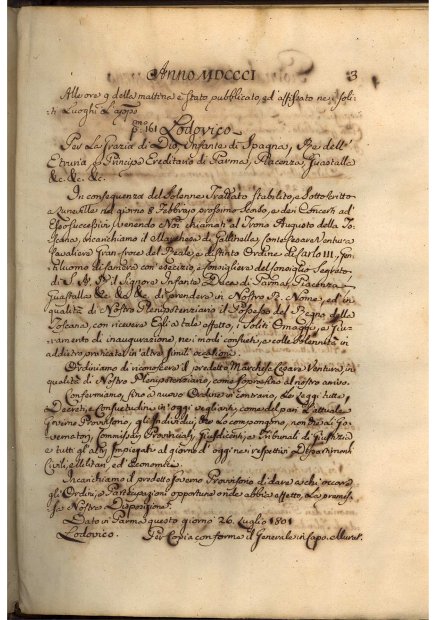 Anno MDCCCI 3
Alle ore 9 della mattina è stato pubblicato, ed affissato nei soli-
ti Luoghi L'appo
p: 161 Lodovico
Per La Grazia di Dio, Infante di Spagna, Re dell'
Etruria, Principe Ereditario di Parma, Piacenza, Guastalla
&c. &c. &c.
In conseguenza del Solenne Trattato stabilito, e Sottoscritto
nel giorno Febbrajo prossimo Scorso, e dei Concerti ad
Esso Successivi, venendo Noi chiamati al Trono Augusto della To-
scana, incarichiamo il Marchese di Gallinella, Conte Cesare Ventura
Cavaliere Gran-Croce del Reale, e distinto Ordine di Carlo III, Gen-
tiluomo di Camera con esercizio, e Consigliere del Consiglio Segreto
di S. A. R. il Signore Infante Duca di Parma, Piacenza,
Guastalla &c. &c. &c. di prendere in Nostro R. Nome, ed in
qualità di Nostro Plenipotenziario il Possesso del Regno della
Toscana, con ricevere Egli a tale effetto, i Soliti Omaggi, e Giu-
ramento di inaugurazione nei modi consueti, e colle Solennità in
addietro praticate in altre simili occasioni.
Ordiniamo di riconoscere il predetto Marchese Cesare Ventura in
qualità di Nostro Plenipotenziario, come Sopra fino al nostro arrivo.
Confermiamo, fino a nuovo Ordine in contrario, Le Leggi tutte,
Decreti, e Consuetudini in oggi veglianti, come del pari L'attuale
Governo Provvisorio, gli Individui, che Lo compongono, non meno i Go-
vernatori, Commissari Provinciali, Giusdicenti, e Tribunali di Giustizia
e tutti gli altri Impiegati al giorno d'oggi nei respettivi Dipartimenti
Civili, e Militari, ed Economici.
Incarichiamo il predetto Governo Provvisorio di dare a chi occorre
gli Ordini, e Partecipazioni opportune onde abbia effetto La presen-
te Nostra Disposizione.
Dato in Parma questo giorno 26. Luglio 1801
Lodovico. Per Copia conforme il Generale in Capo, Murat.